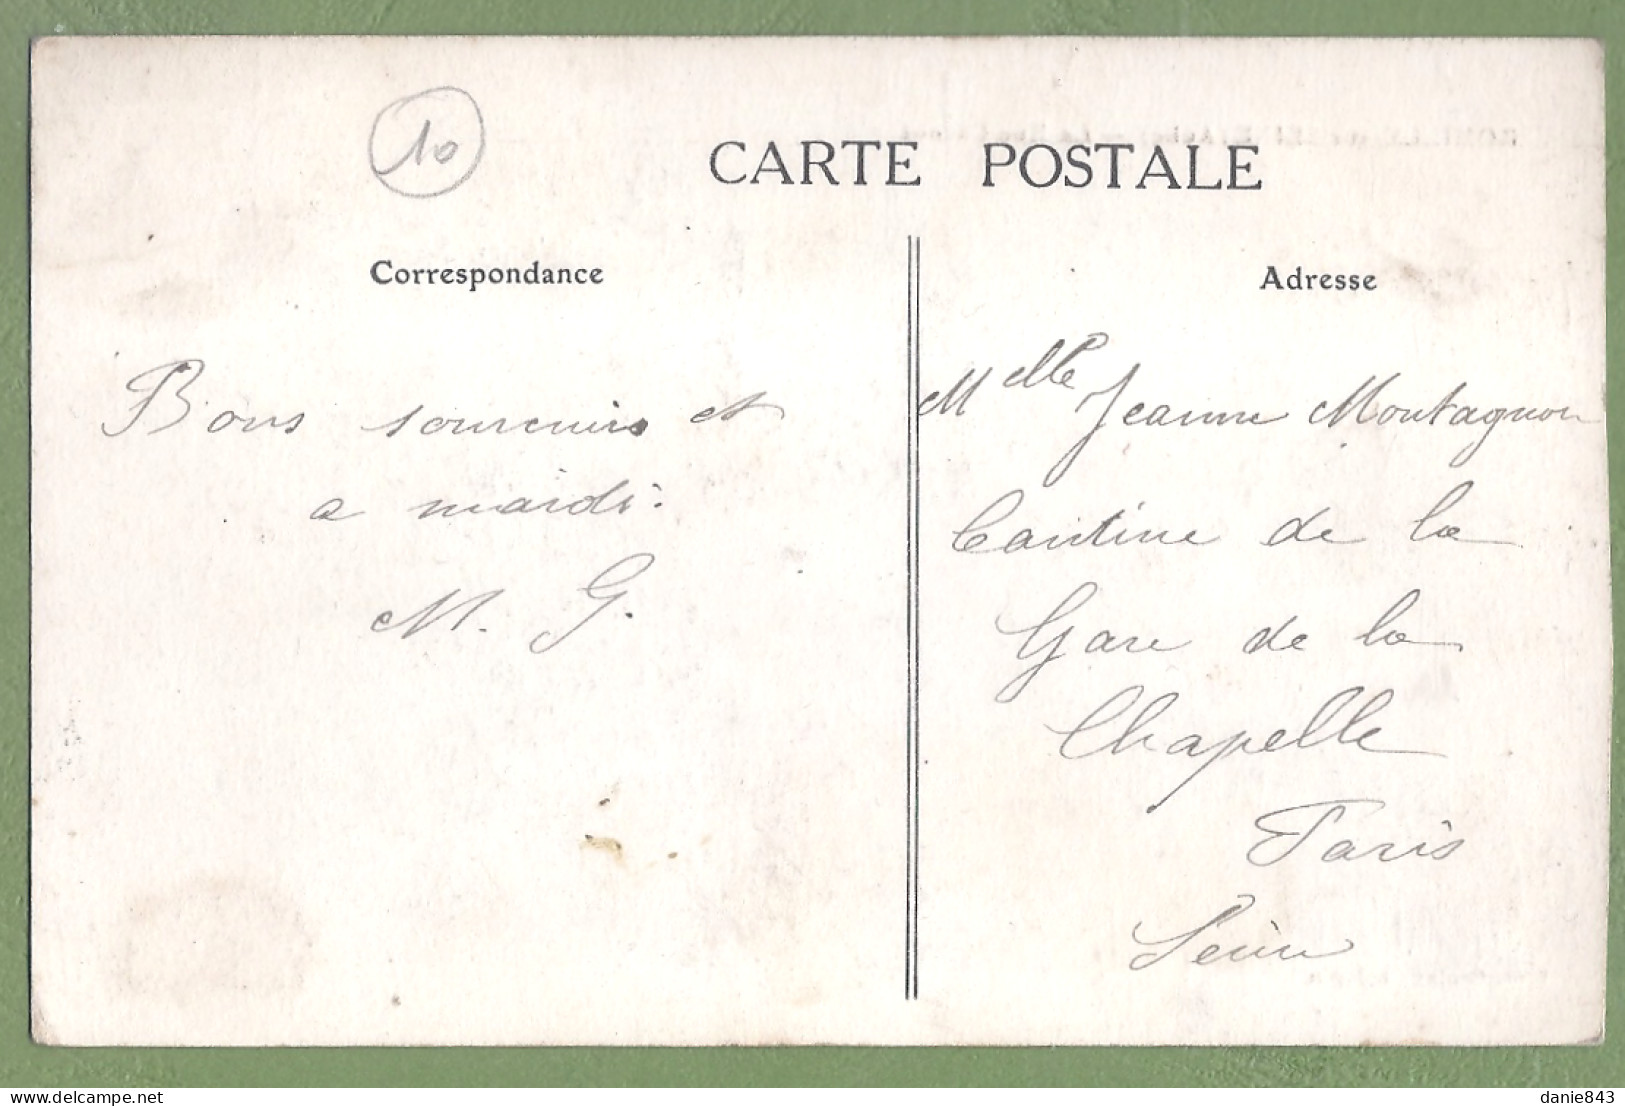 10
CARTE POSTALE
Correspondance
Adresse
Bons souvenirs et
a mardi.
M. G.
Melle Jeanne Montagnon
Cantine de la
Gare de la
Chapelle
Paris
Seine
delcampe.net
danie843